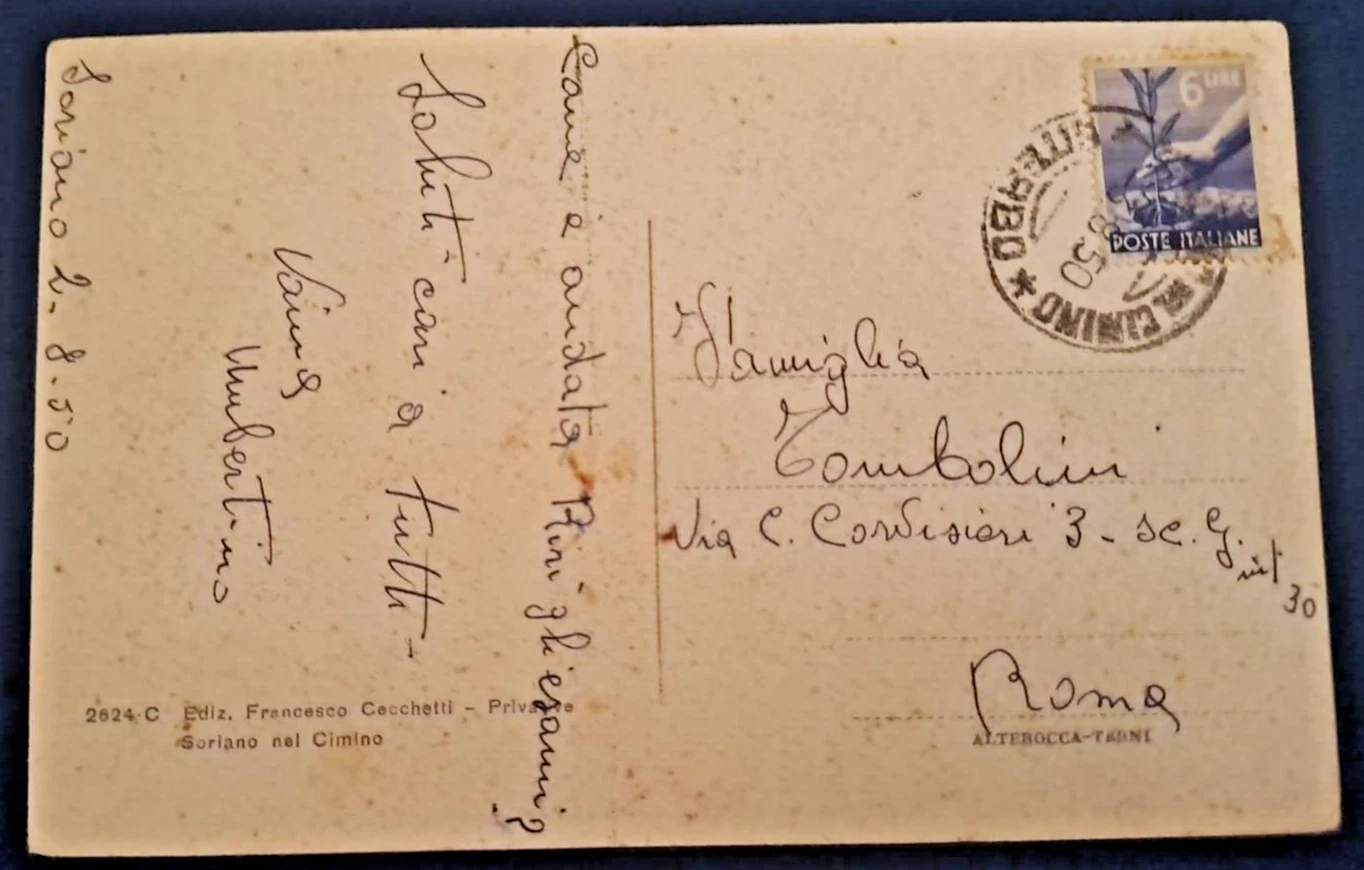 Soriano 2-8-50
Come è andata Pinì gli esami?
Saluti cari a tutti -
Vaima
Umbertino
6 LIRE
POSTE ITALIANE
VITERBO
NEL CIMINO
8.50
Famiglia
Tombolini
Via C. Corvisieri 3 - sc. G. int 30
Roma
2624-C Ediz. Francesco Cecchetti - Privative
Soriano nel Cimino
ALTEROCCA-TERNI